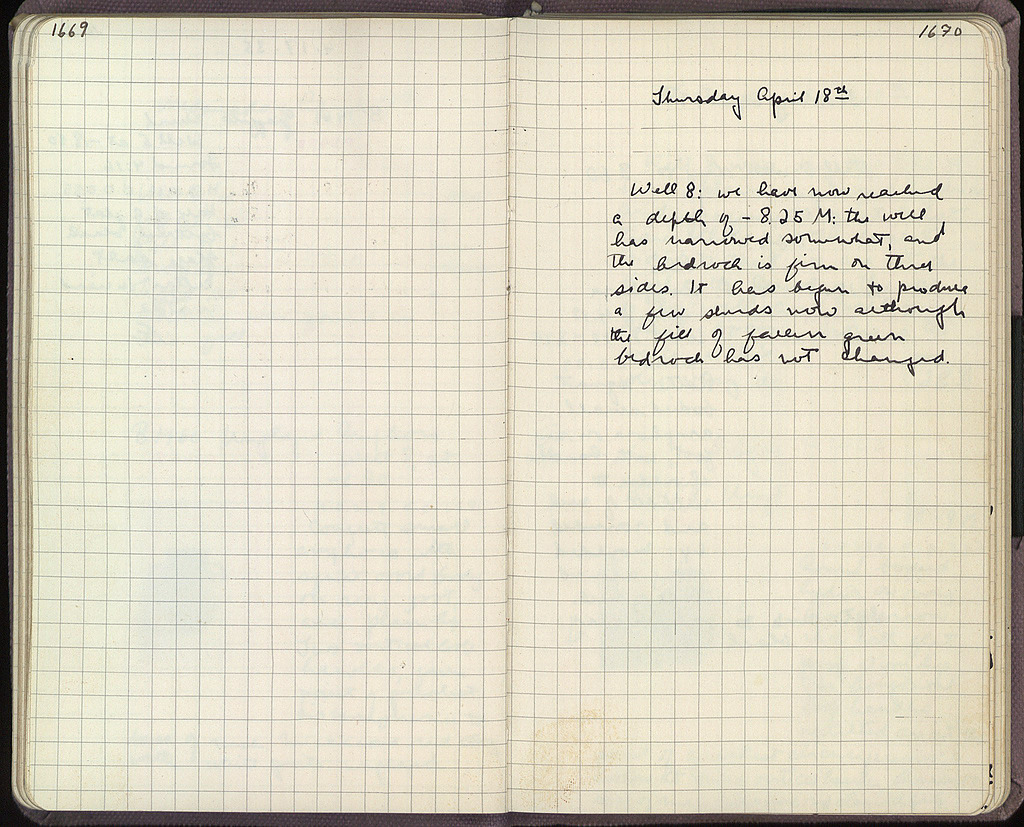 1669
1670
Thursday April 18th
Well 8: we have now reached
a depth of - 8.25 M: the well
has narrowed somewhat, and
the bedrock is firm on three
sides. It has begun to produce
a few sherds now although
the fill of fallen green
bedrock has not changed.